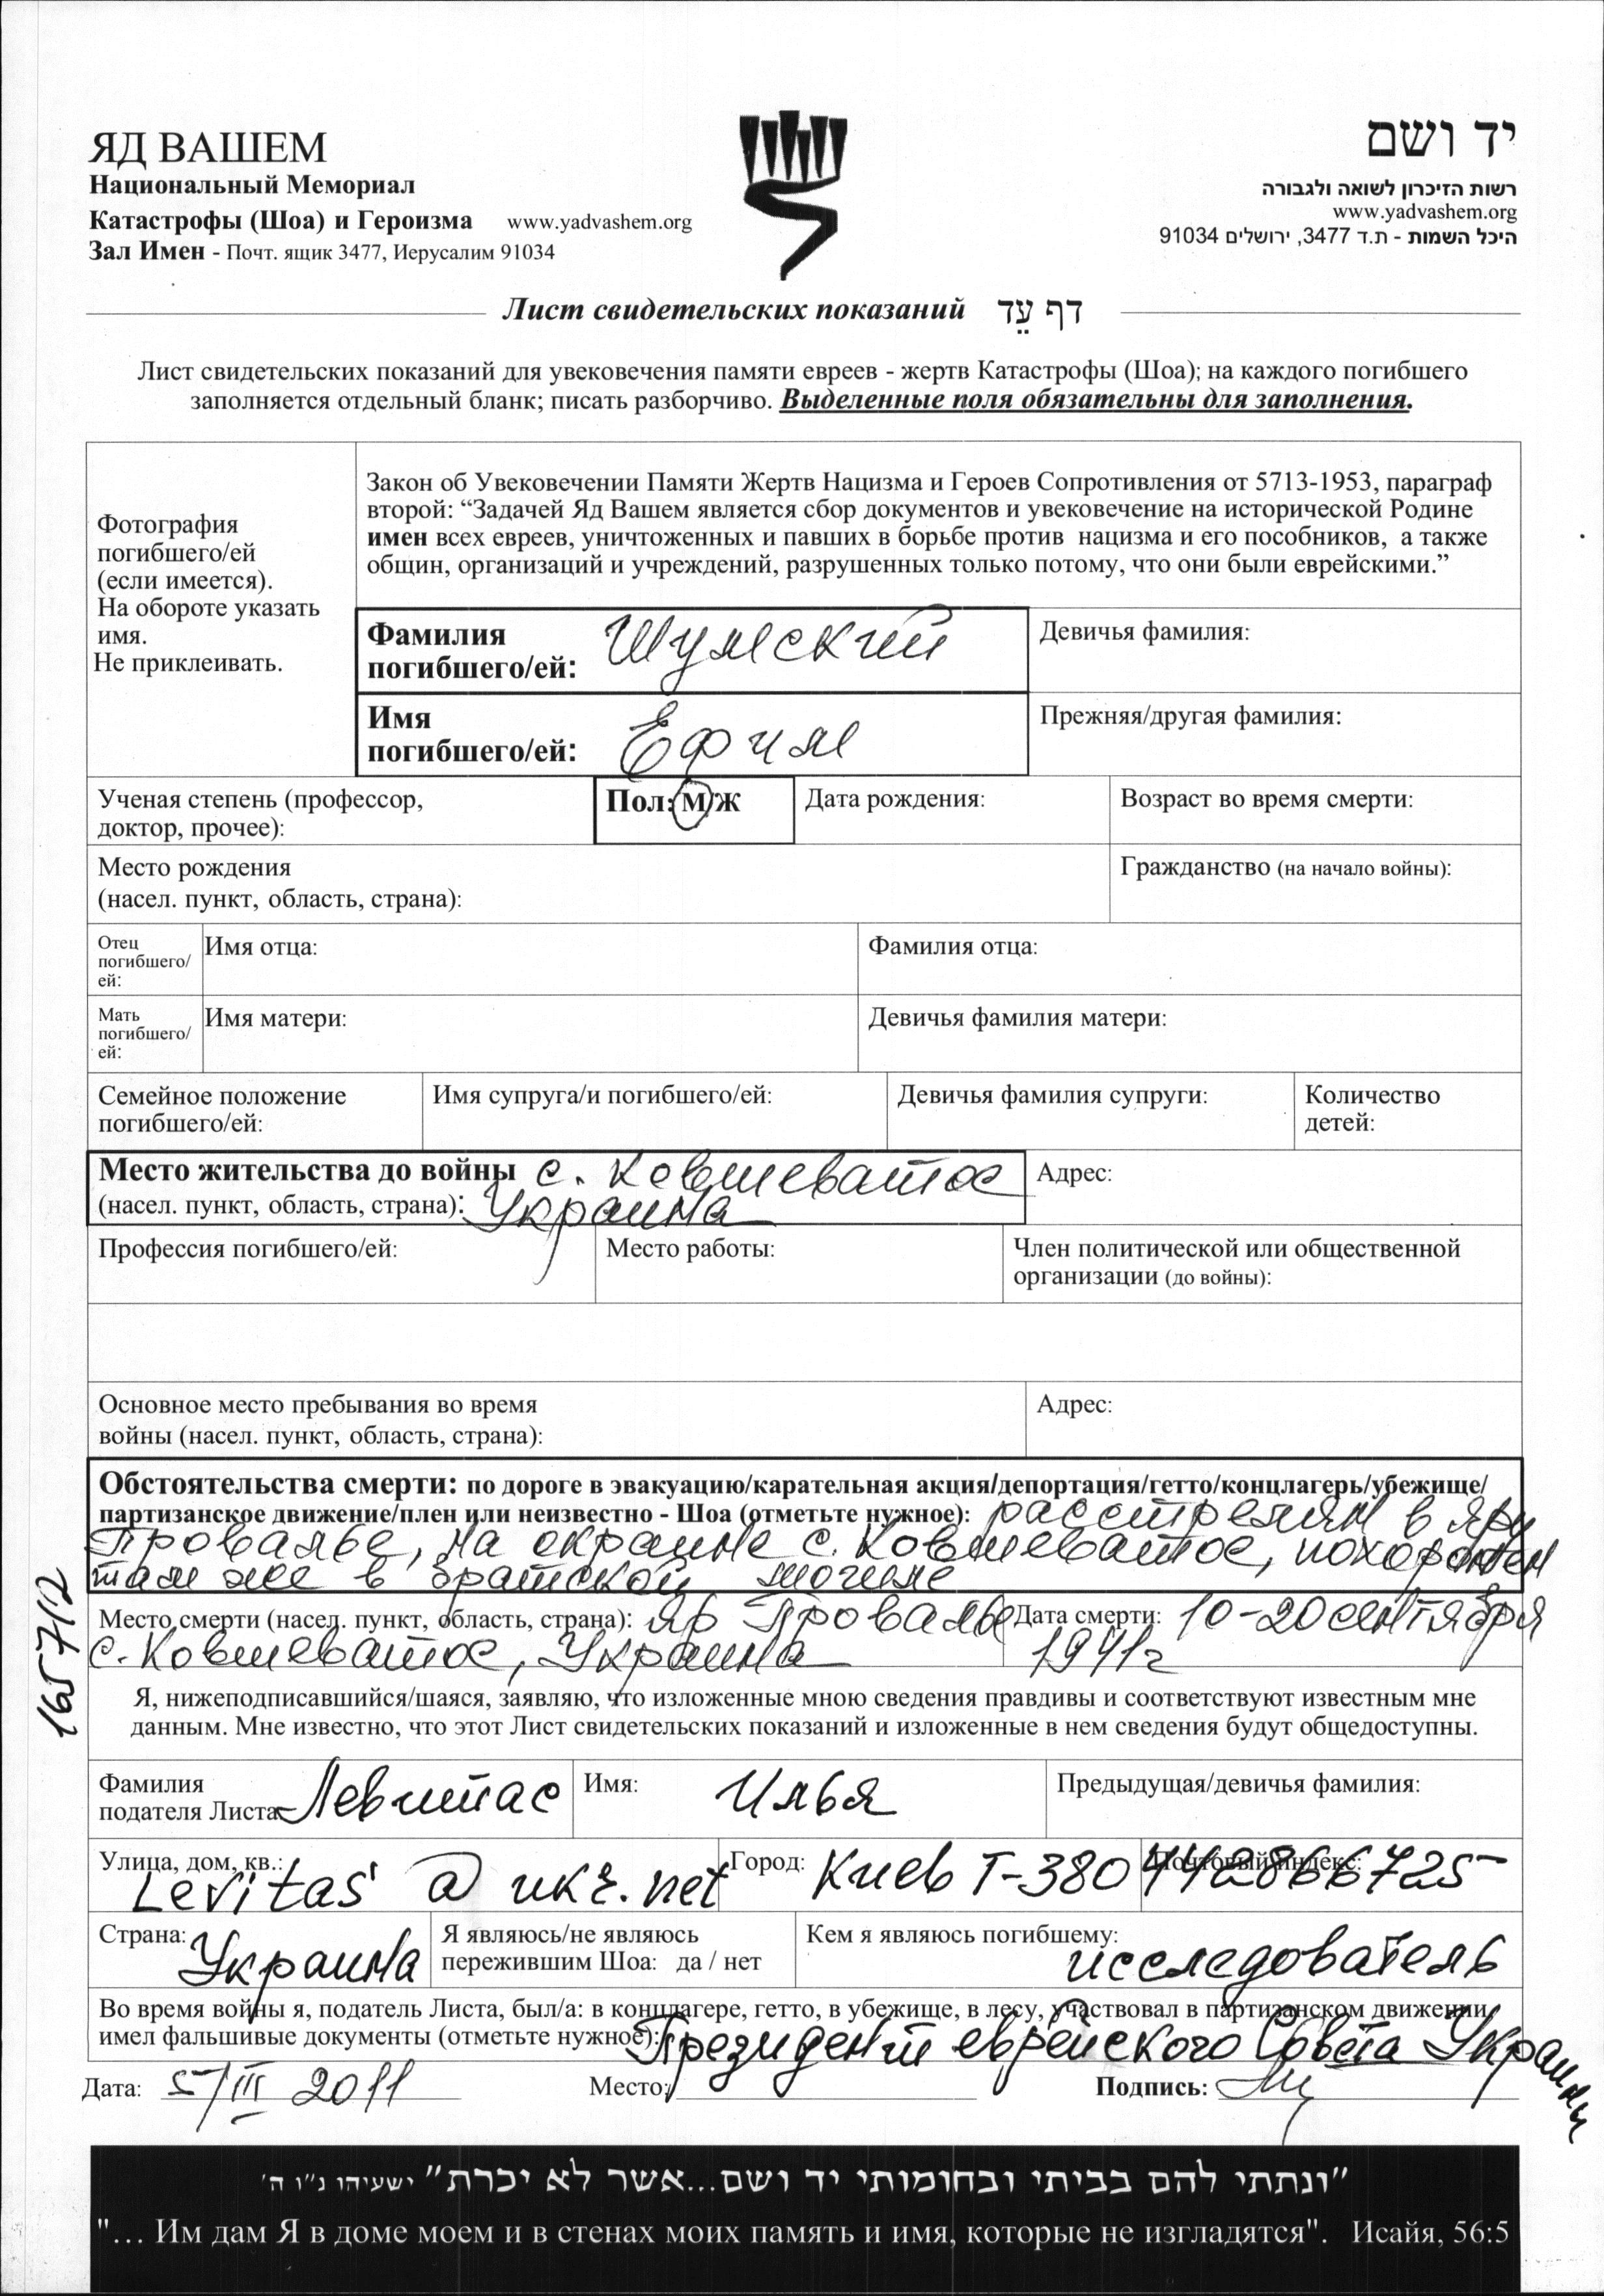 ЯД ВАШЕМ
יד ושם
Национальный Мемориал
רשות הזיכרון לשואה ולגבורה
Катастрофы (Шоа) и Героизма www.yadvashem.org
www.yadvashem.org
Зал Имен - Почт. ящик 3477, Иерусалим 91034
היכל השמות - ת.ד 3477, ירושלים 91034
Лист свидетельских показаний דף עֵד
Лист свидетельских показаний для увековечения памяти евреев - жертв Катастрофы (Шоа); на каждого погибшего
заполняется отдельный бланк; писать разборчиво. Выделенные поля обязательны для заполнения.
Фотография
погибшего/ей
(если имеется).
На обороте указать
имя.
Не приклеивать.
Закон об Увековечении Памяти Жертв Нацизма и Героев Сопротивления от 5713-1953, параграф
второй: “Задачей Яд Вашем является сбор документов и увековечение на исторической Родине
имен всех евреев, уничтоженных и павших в борьбе против нацизма и его пособников, а также
общин, организаций и учреждений, разрушенных только потому, что они были еврейскими.”
Фамилия
погибшего/ей: Шумский
Девичья фамилия:
Имя
погибшего/ей: Ефим
Прежняя/другая фамилия:
Ученая степень (профессор,
доктор, прочее):
Пол: М/Ж
Дата рождения:
Возраст во время смерти:
Место рождения
(насел. пункт, область, страна):
Гражданство (на начало войны):
Отец
погибшего/
ей:
Имя отца:
Фамилия отца:
Мать
погибшего/
ей:
Имя матери:
Девичья фамилия матери:
Семейное положение
погибшего/ей:
Имя супруга/и погибшего/ей:
Девичья фамилия супруги:
Количество
детей:
Место жительства до войны с. Ковшеватое
(насел. пункт, область, страна): Украина
Адрес:
Профессия погибшего/ей:
Место работы:
Член политической или общественной
организации (до войны):
Основное место пребывания во время
войны (насел. пункт, область, страна):
Адрес:
Обстоятельства смерти: по дороге в эвакуацию/карательная акция/депортация/гетто/концлагерь/убежище/
партизанское движение/плен или неизвестно - Шоа (отметьте нужное): расстрелян в яру
Провалье, на окраине с. Ковшеватое, похоронен
там же в братской могиле
Место смерти (насел. пункт, область, страна): яр Провалье
с. Ковшеватое, Украина
Дата смерти: 10-20 сентября
1941г
165712
Я, нижеподписавшийся/шаяся, заявляю, что изложенные мною сведения правдивы и соответствуют известным мне
данным. Мне известно, что этот Лист свидетельских показаний и изложенные в нем сведения будут общедоступны.
Фамилия
подателя Листа Левитас
Имя: Илья
Предыдущая/девичья фамилия:
Улица, дом, кв.:
Levitas @ ukr.net
Город: Киев Т-380442866725
Почтовый индекс:
Страна: Украина
Я являюсь/не являюсь
пережившим Шоа: да / нет
Кем я являюсь погибшему:
исследователь
Во время войны я, податель Листа, был/а: в концлагере, гетто, в убежище, в лесу, участвовал в партизанском движении,
имел фальшивые документы (отметьте нужное): Президент еврейского Совета Украины
Дата: 5/III 2011 Место: Подпись:
"ונתתי להם בביתי ובחומותי יד ושם...אשר לא יכרת" ישעיהו נ"ו ה'
"... Им дам Я в доме моем и в стенах моих память и имя, которые не изгладятся". Исайя, 56:5